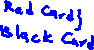 Red Card}
Black Card